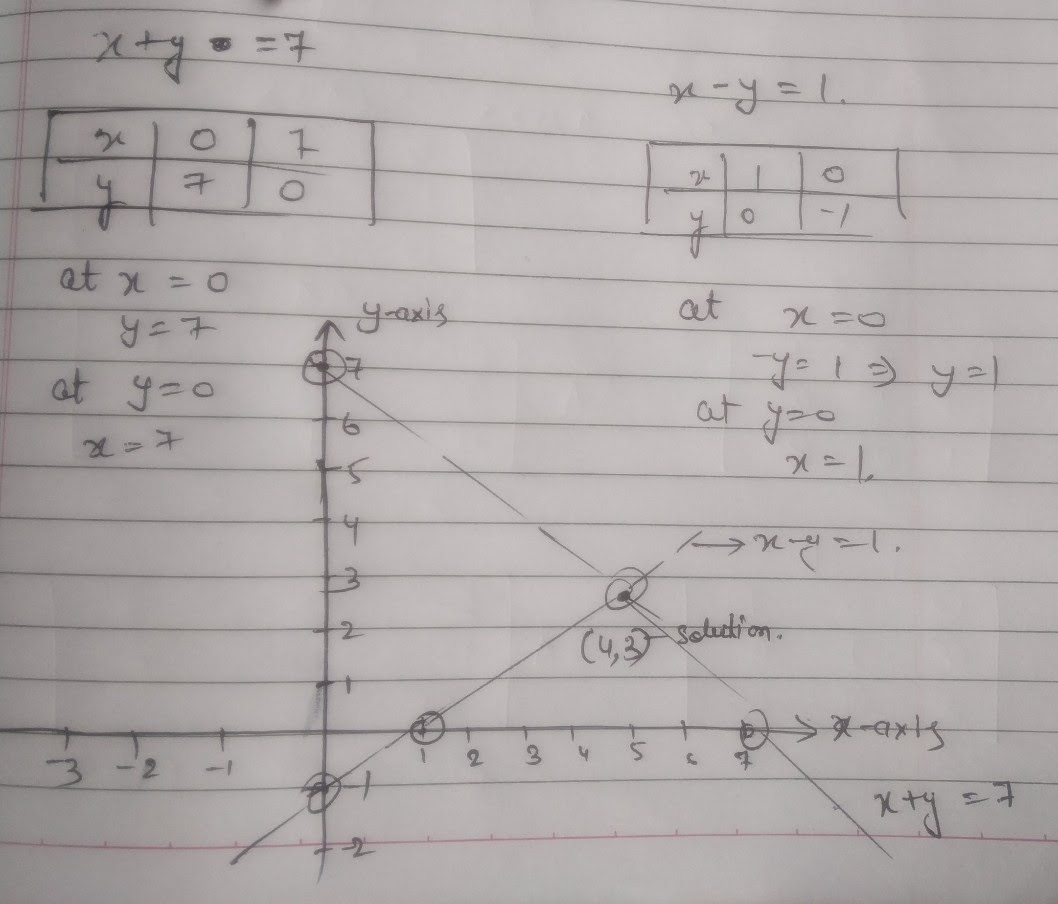 x+y = 7
x | 0 | 7
y | 7 | 0
at x = 0
y = 7
at y = 0
x = 7
x - y = 1.
x | 1 | 0
y | 0 | -1
at x = 0
-y = 1 ⇒ y = 1
at y = 0
x = 1.
y-axis
7
6
5
4
3
2
1
-1
-2
→ x-y = 1.
(4,3) solution.
-3 -2 -1 1 2 3 4 5 6 7
x-axis
x+y = 7